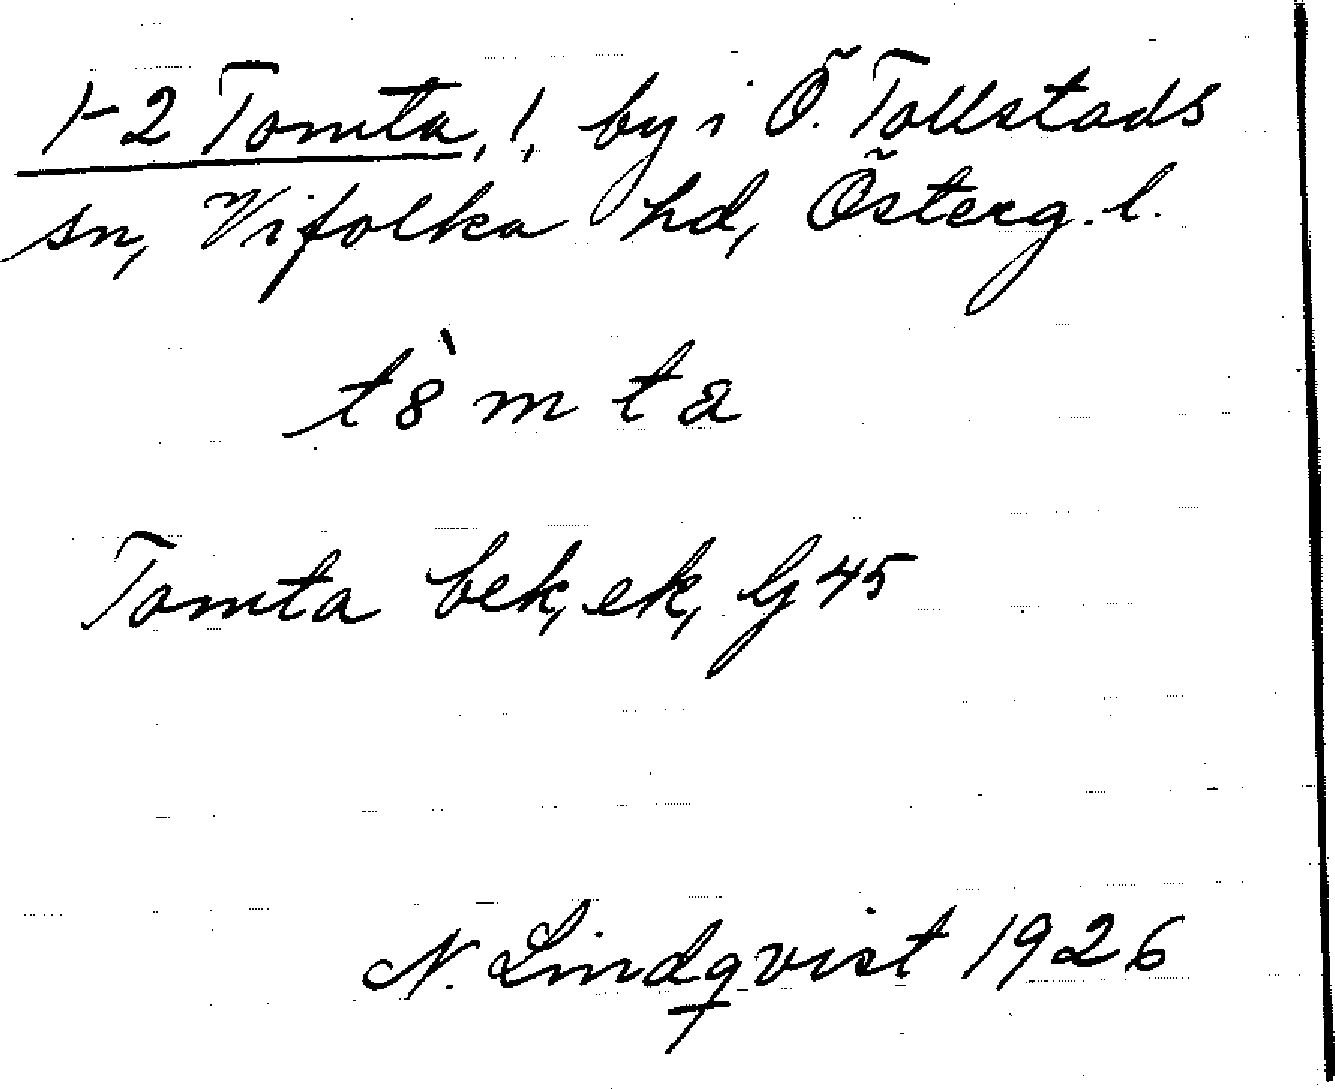 1-2 Tomta, !, by i Ö. Tollstads
sn, Vifolka hd, Österg. l.
t8̀mta
Tomta bek, ek, G 45
N. Lindqvist 1926